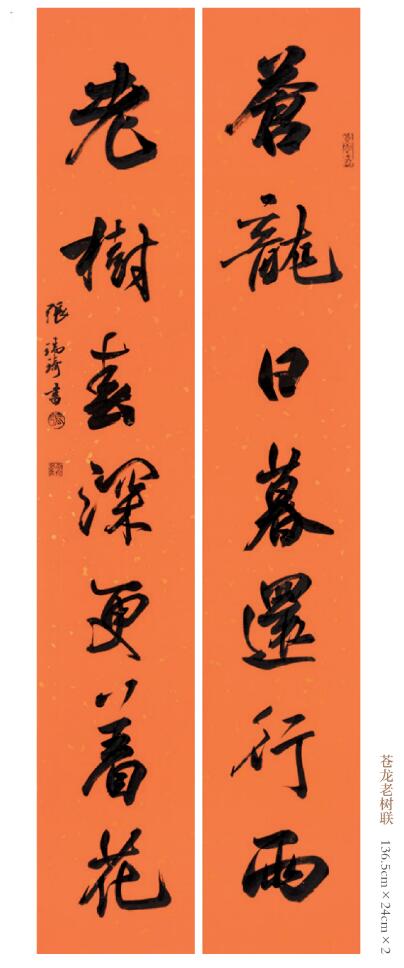 蒼龍日暮還行雨
老樹春深更着花
張瑞琦書
苍龙老树联 136.5cm×24cm×2